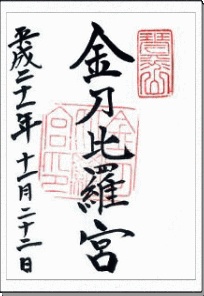 金刀比羅宮
平成二十一年 十一月二十二日